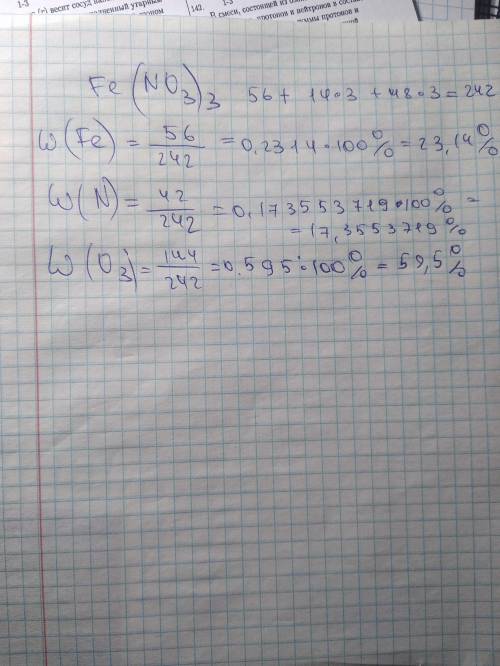 1-3
(г) весит сосуд
142.
1-3
В смеси, состоящей из
протонов и нейтронов в
протонов и
Fe(NO3)3 56+ 14•3 +48•3=242
W(Fe) = 56/242 =0,2314•100% = 23,14%
W(N)= 42/242 =0,173553719•100% =
= 17,3553719%
W(O3)= 144/242 =0,595•100% = 59,5%